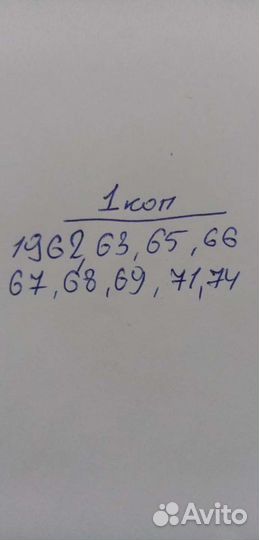 1 коп
1962, 63, 65, 66
67, 68, 69, 71, 74
Avito